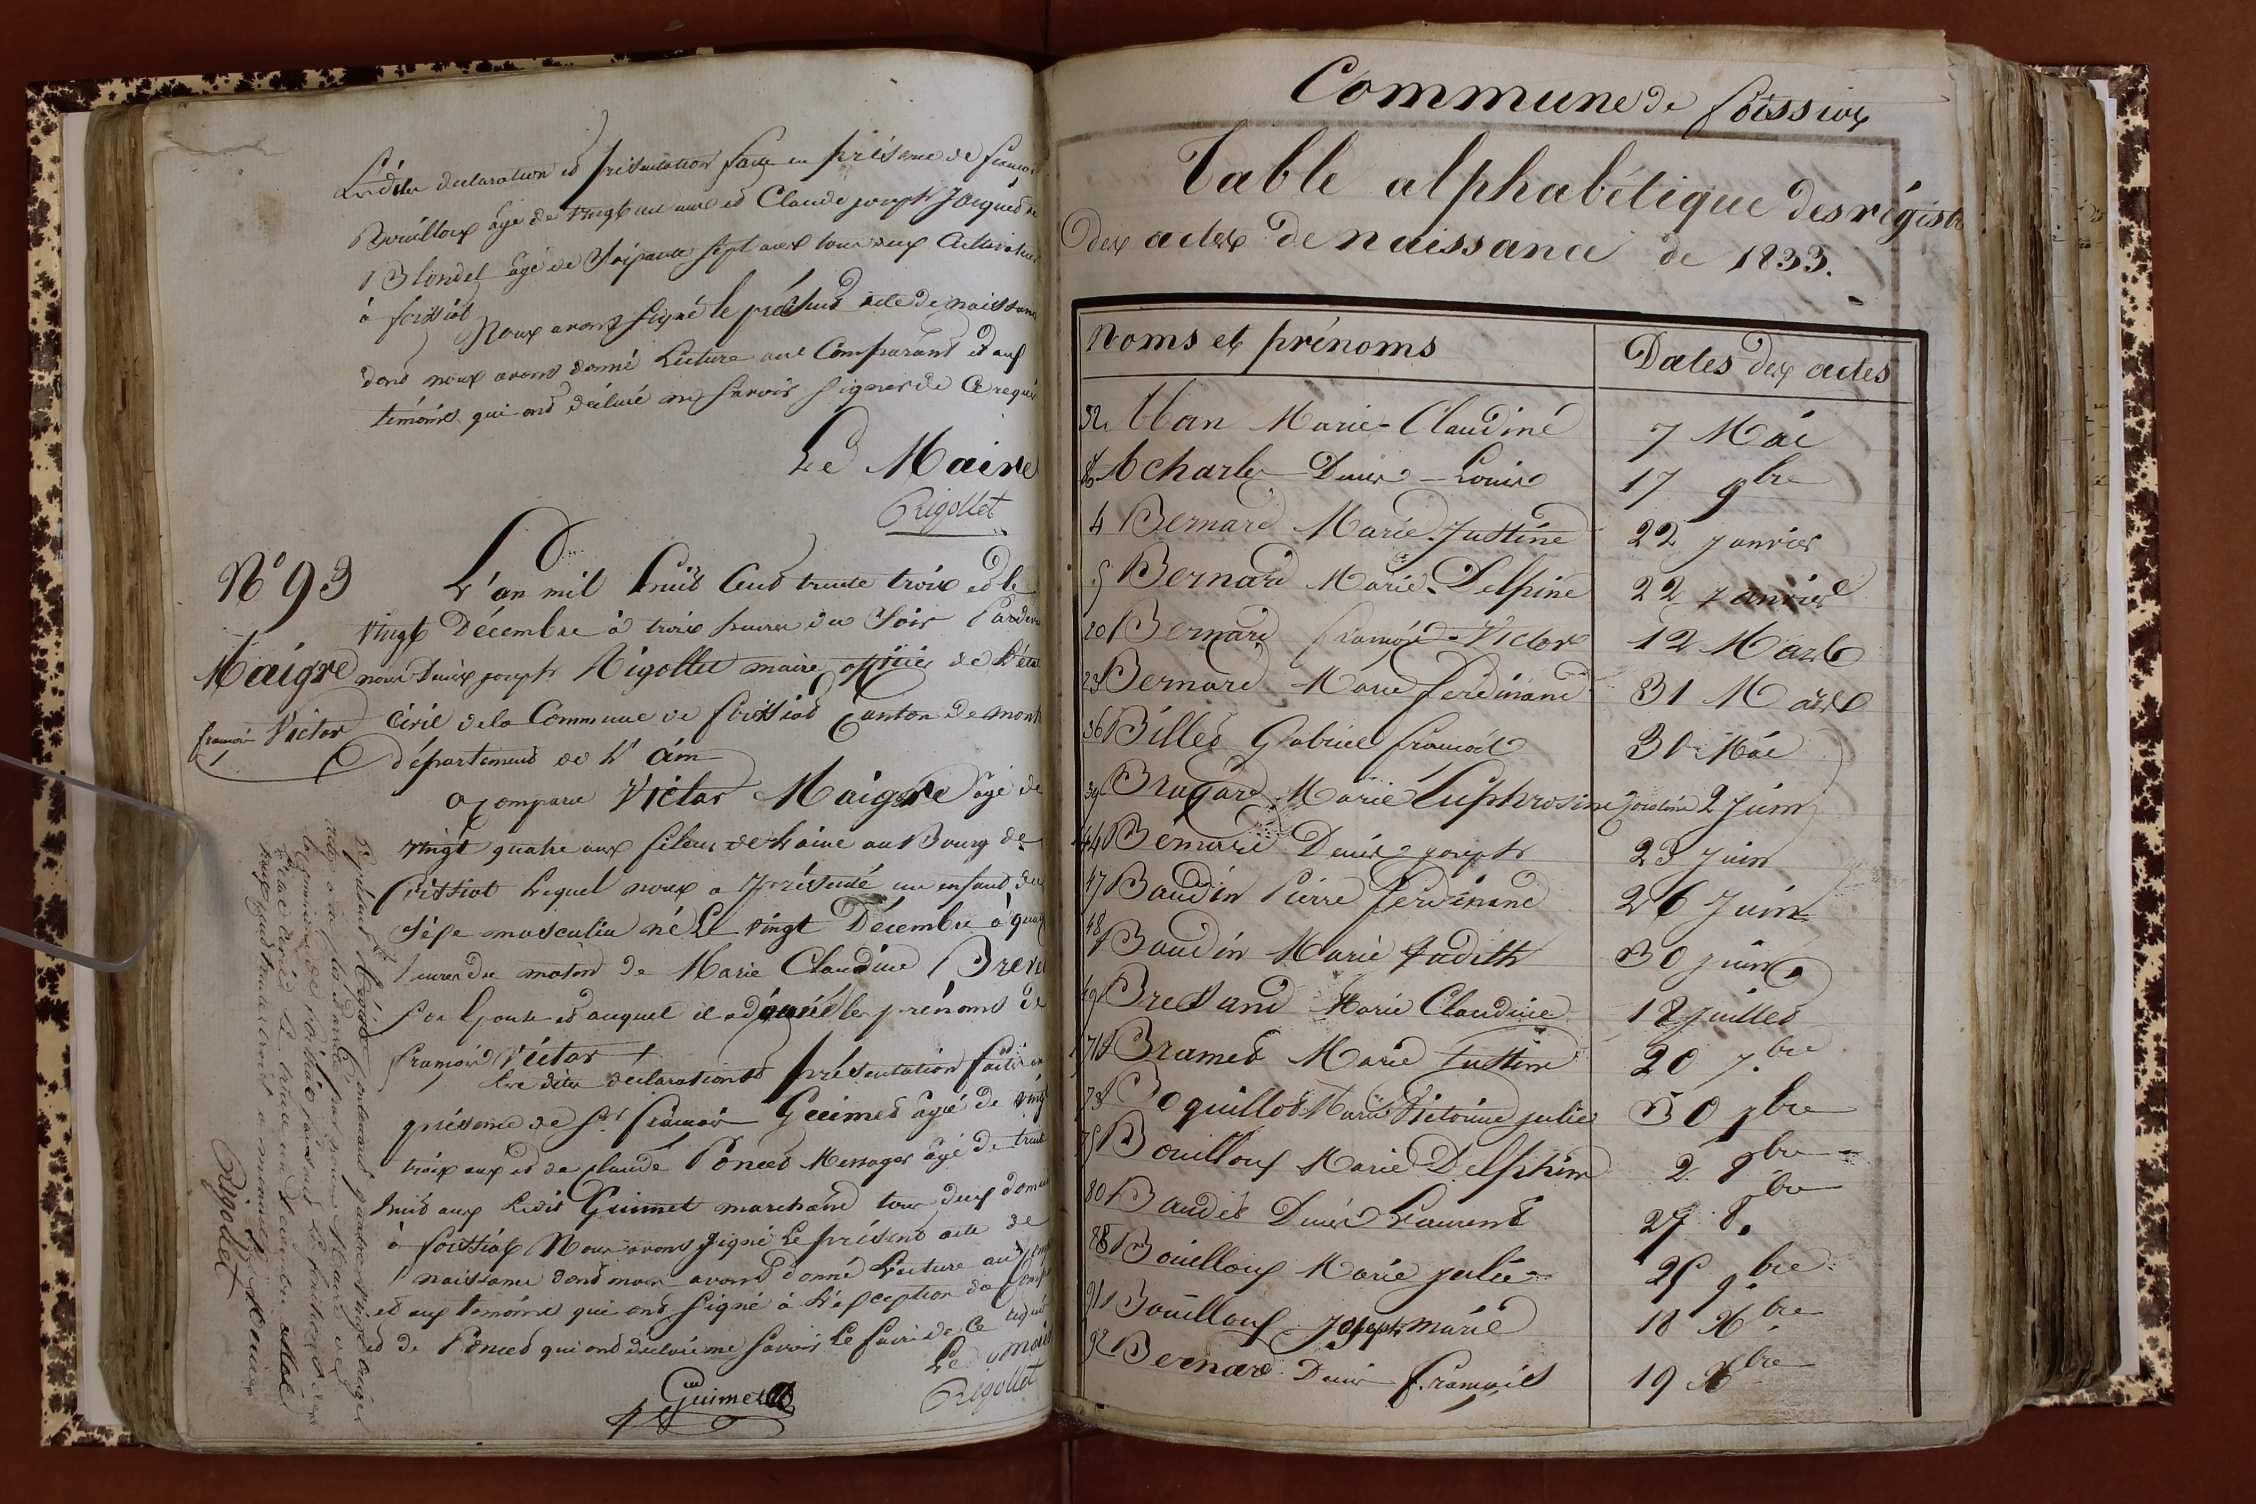 Les dites declaration et présentation faite en présence de françois
Bouilloux âgé de vingt un ans et Claude joseph
Blondel âgé de Soixante sept ans tous deux Cultivateurs
à foissiat
Nous avons signé le présent acte de naissance
dont nous avons donné Lecture au Comparant et aux
témoins qui ont déclaré ne savoir signer de Ce requis
Le Maire
Rigollet
N° 93
L'an mil huit Cent trente trois et le
vingt Décembre à trois heures du Soir Pardevant
Maigre
françois Victor
nous Denis joseph Rigollet maire officier de l'état
Civil de la Commune de foissiat Canton de mont
département de l'Ain
a Comparu Victor Maigre âgé de
vingt quatre ans fileur de Laine au Bourg de
foissiat Lequel nous a présenté un enfant du
sexe masculin né Le vingt Décembre à quatre
heures du matin de Marie Claudine
son Epouse et auquel il a donné les prénoms de
françois Victor
Les dites declaration et présentation faites en
présence de Sr françois Guimet âgé de vingt
trois ans et de Claude Poncet Messager âgé de trente
huit ans Ledit Guimet marchand tous deux
à foissiat Nous avons signé Le présent acte de
naissance dont nous avons donné Lecture au
et aux temoins qui ont signé à L'exception du
et de Poncet qui ont declaré ne savoir Le faire de Ce requis
Le maire
Guimet
Rigollet
Le présent Régistre Contenant quatre vingt treize
actes a été Clos et arrêté par nous Maire de
la Commune de foissiat
trente un Decembre mil
huit cent trente trois
Le Maire
Rigollet
Commune de foissiat
Table alphabétique des régistres
des actes de naissance de 1833.
Noms et prénoms Dates des actes
32 Alban Marie-Claudine 7 Mai
86 Acharle Denis-Louis 17 9bre
4 Bernard Marie-Justine 22 janvier
5 Bernard Marie-Delphine 22 janvier
20 Bernard françois-Victor 12 Mars
23 Bernard Marie ferdinand 31 Mars
36 Billet Gabriel françois 30 Mai
39 Bragard Marie Euphrosine 2 Juin
44 Bernard Denis joseph 23 Juin
47 Baudin Pierre ferdinand 26 Juin
48 Baudin Marie Judith 30 juin
49 Bressand Marie Claudine 18 juillet
71 Bramet Marie Justine 20 7bre
73 Boquillot Marie Victoine julie 30 7bre
75 Bouilloux Marie Delphine 2 8bre
80 Baudet Denis Laurent 27 8bre
88 Bouilloux Marie julie 25 9bre
91 Bouilloux Joseph marie 18 Xbre
92 Bernard Denis françois 19 Xbre